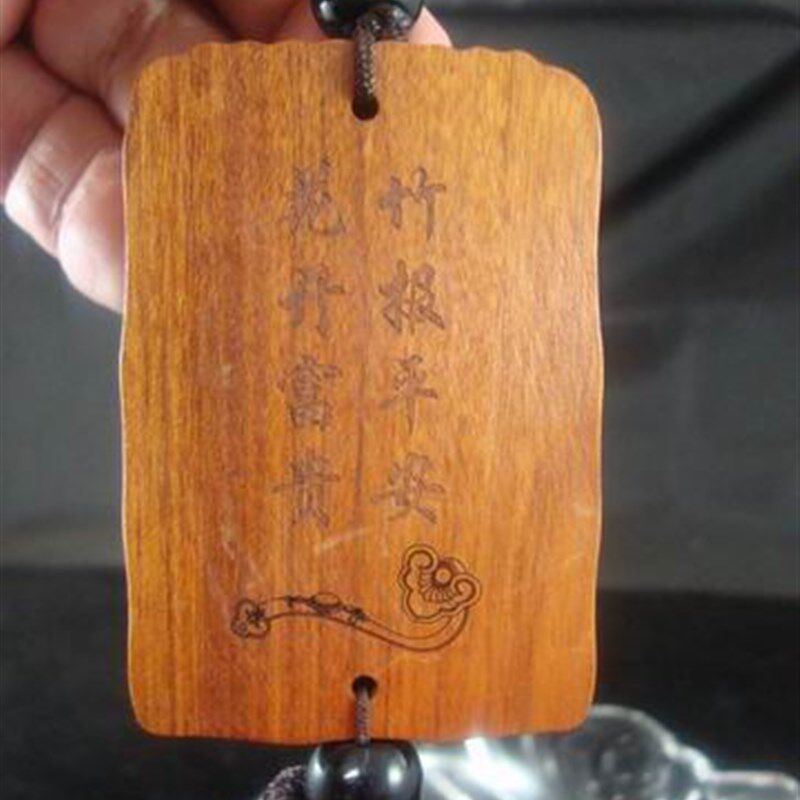 竹报平安
花开富贵